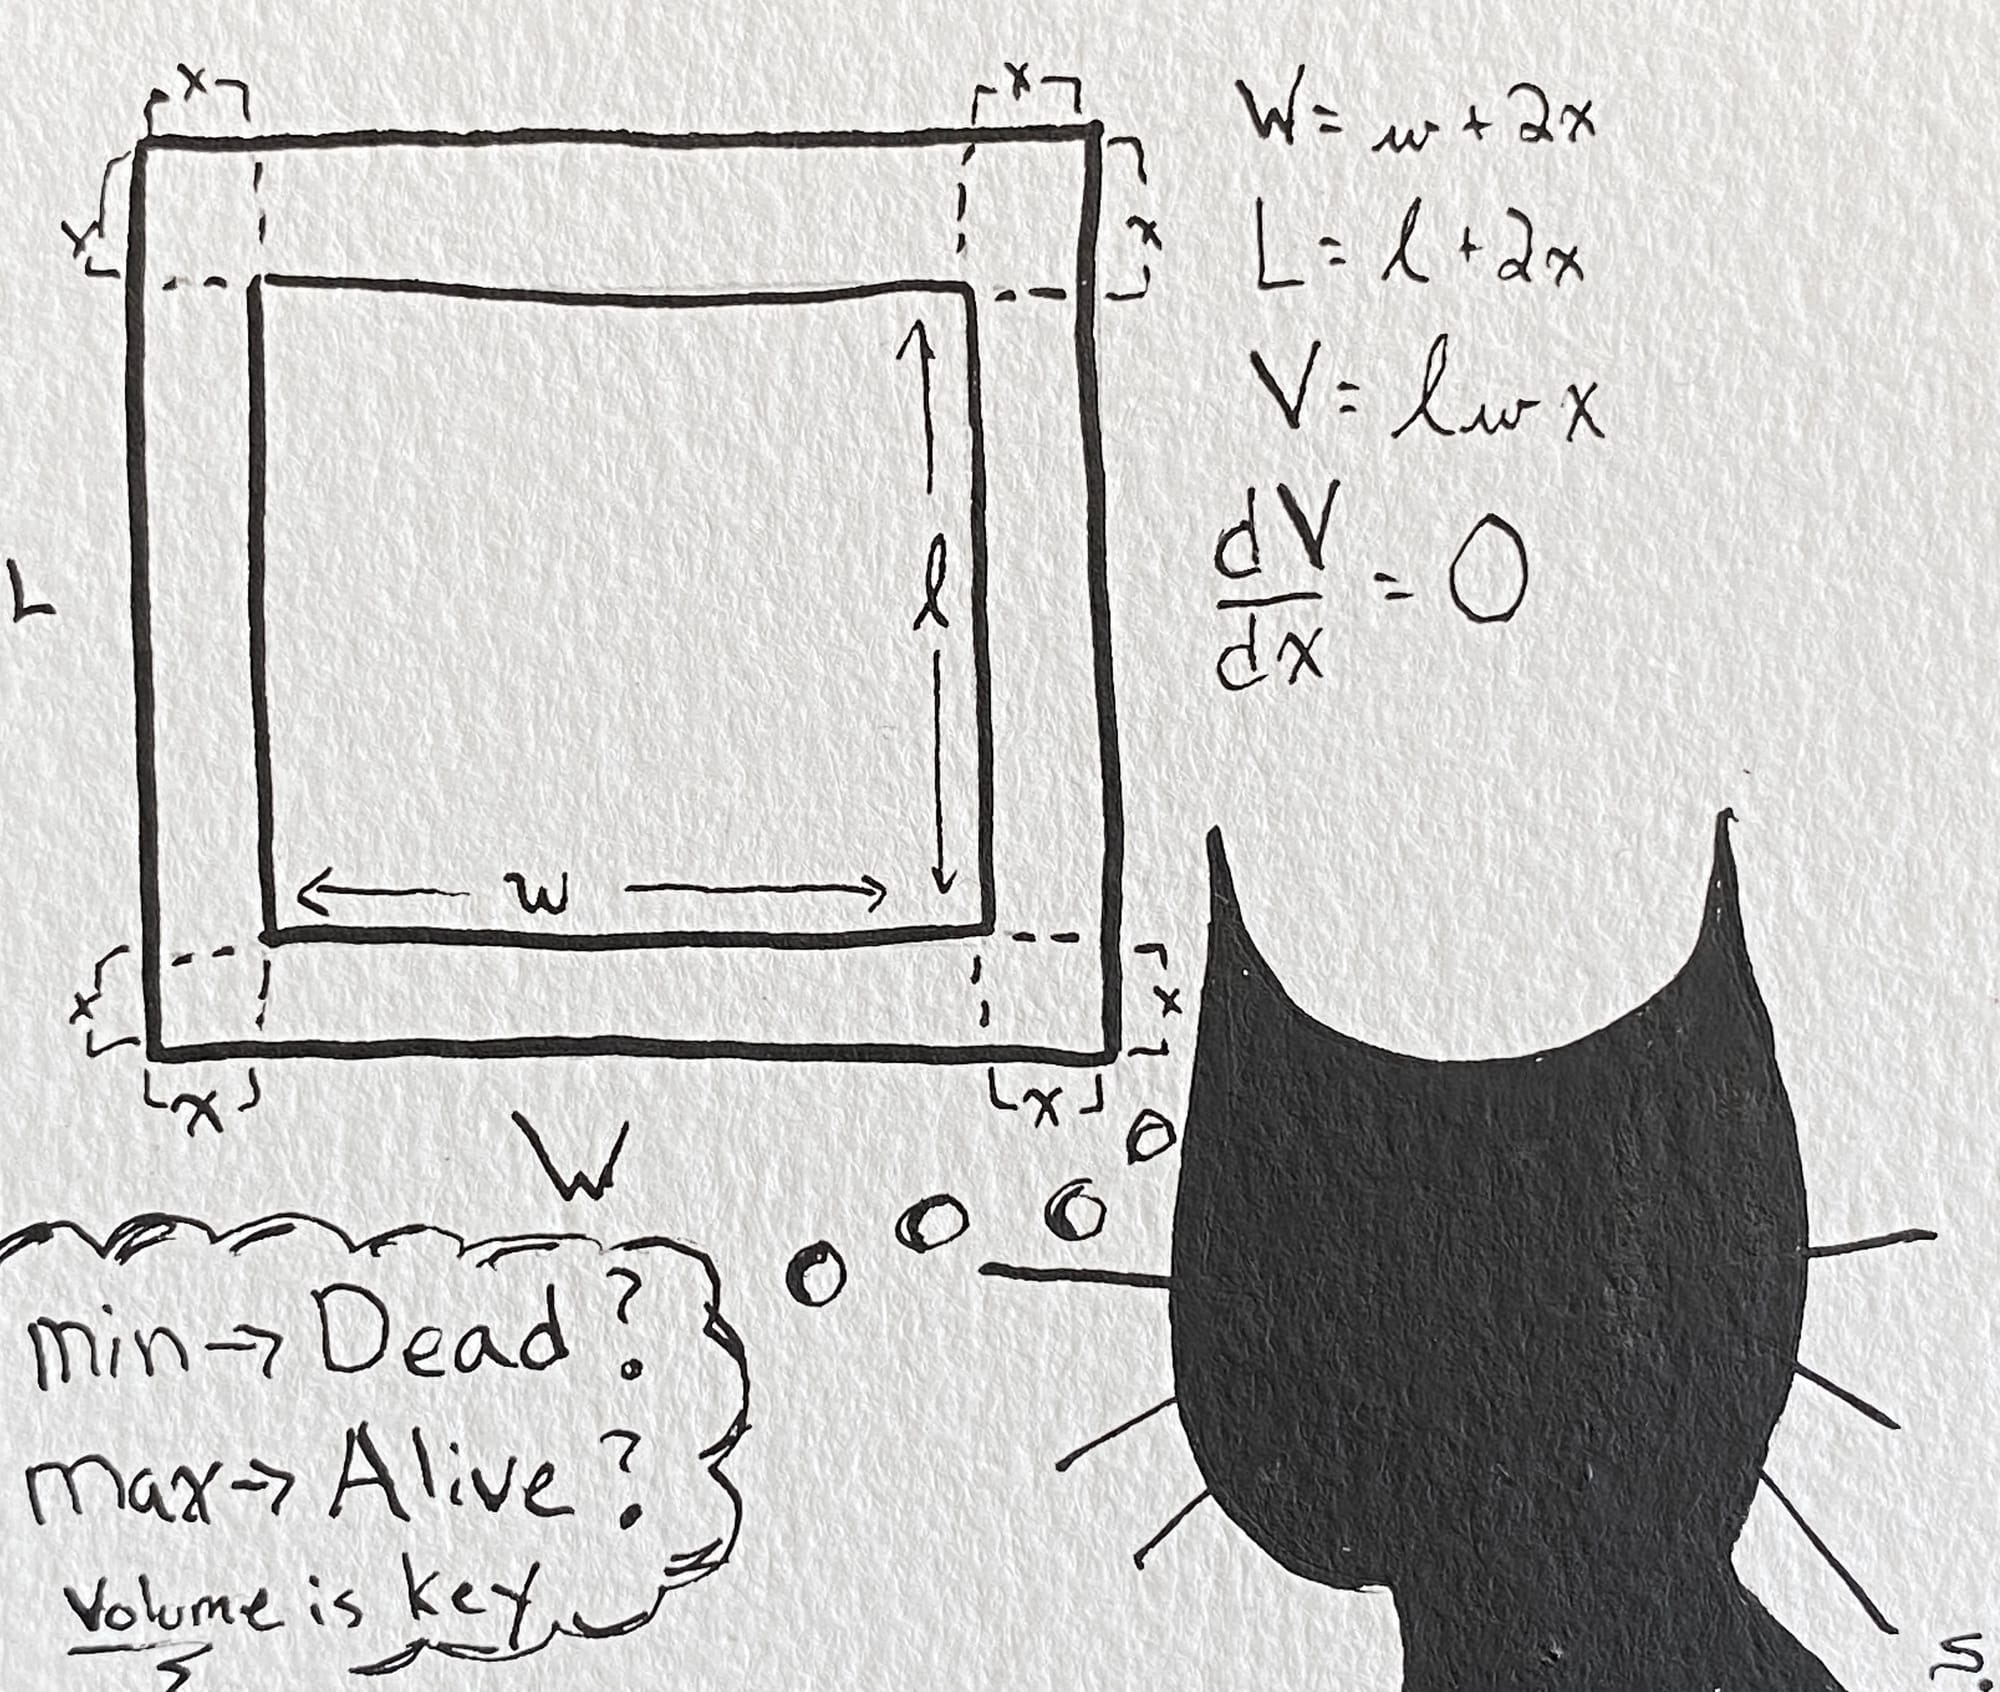 x x
W = w + 2x
x x
L = l + 2x
V = l w x
dV/dx = 0
L
l
w
x x
x x
W
min → Dead?
max → Alive?
Volume is key
S.